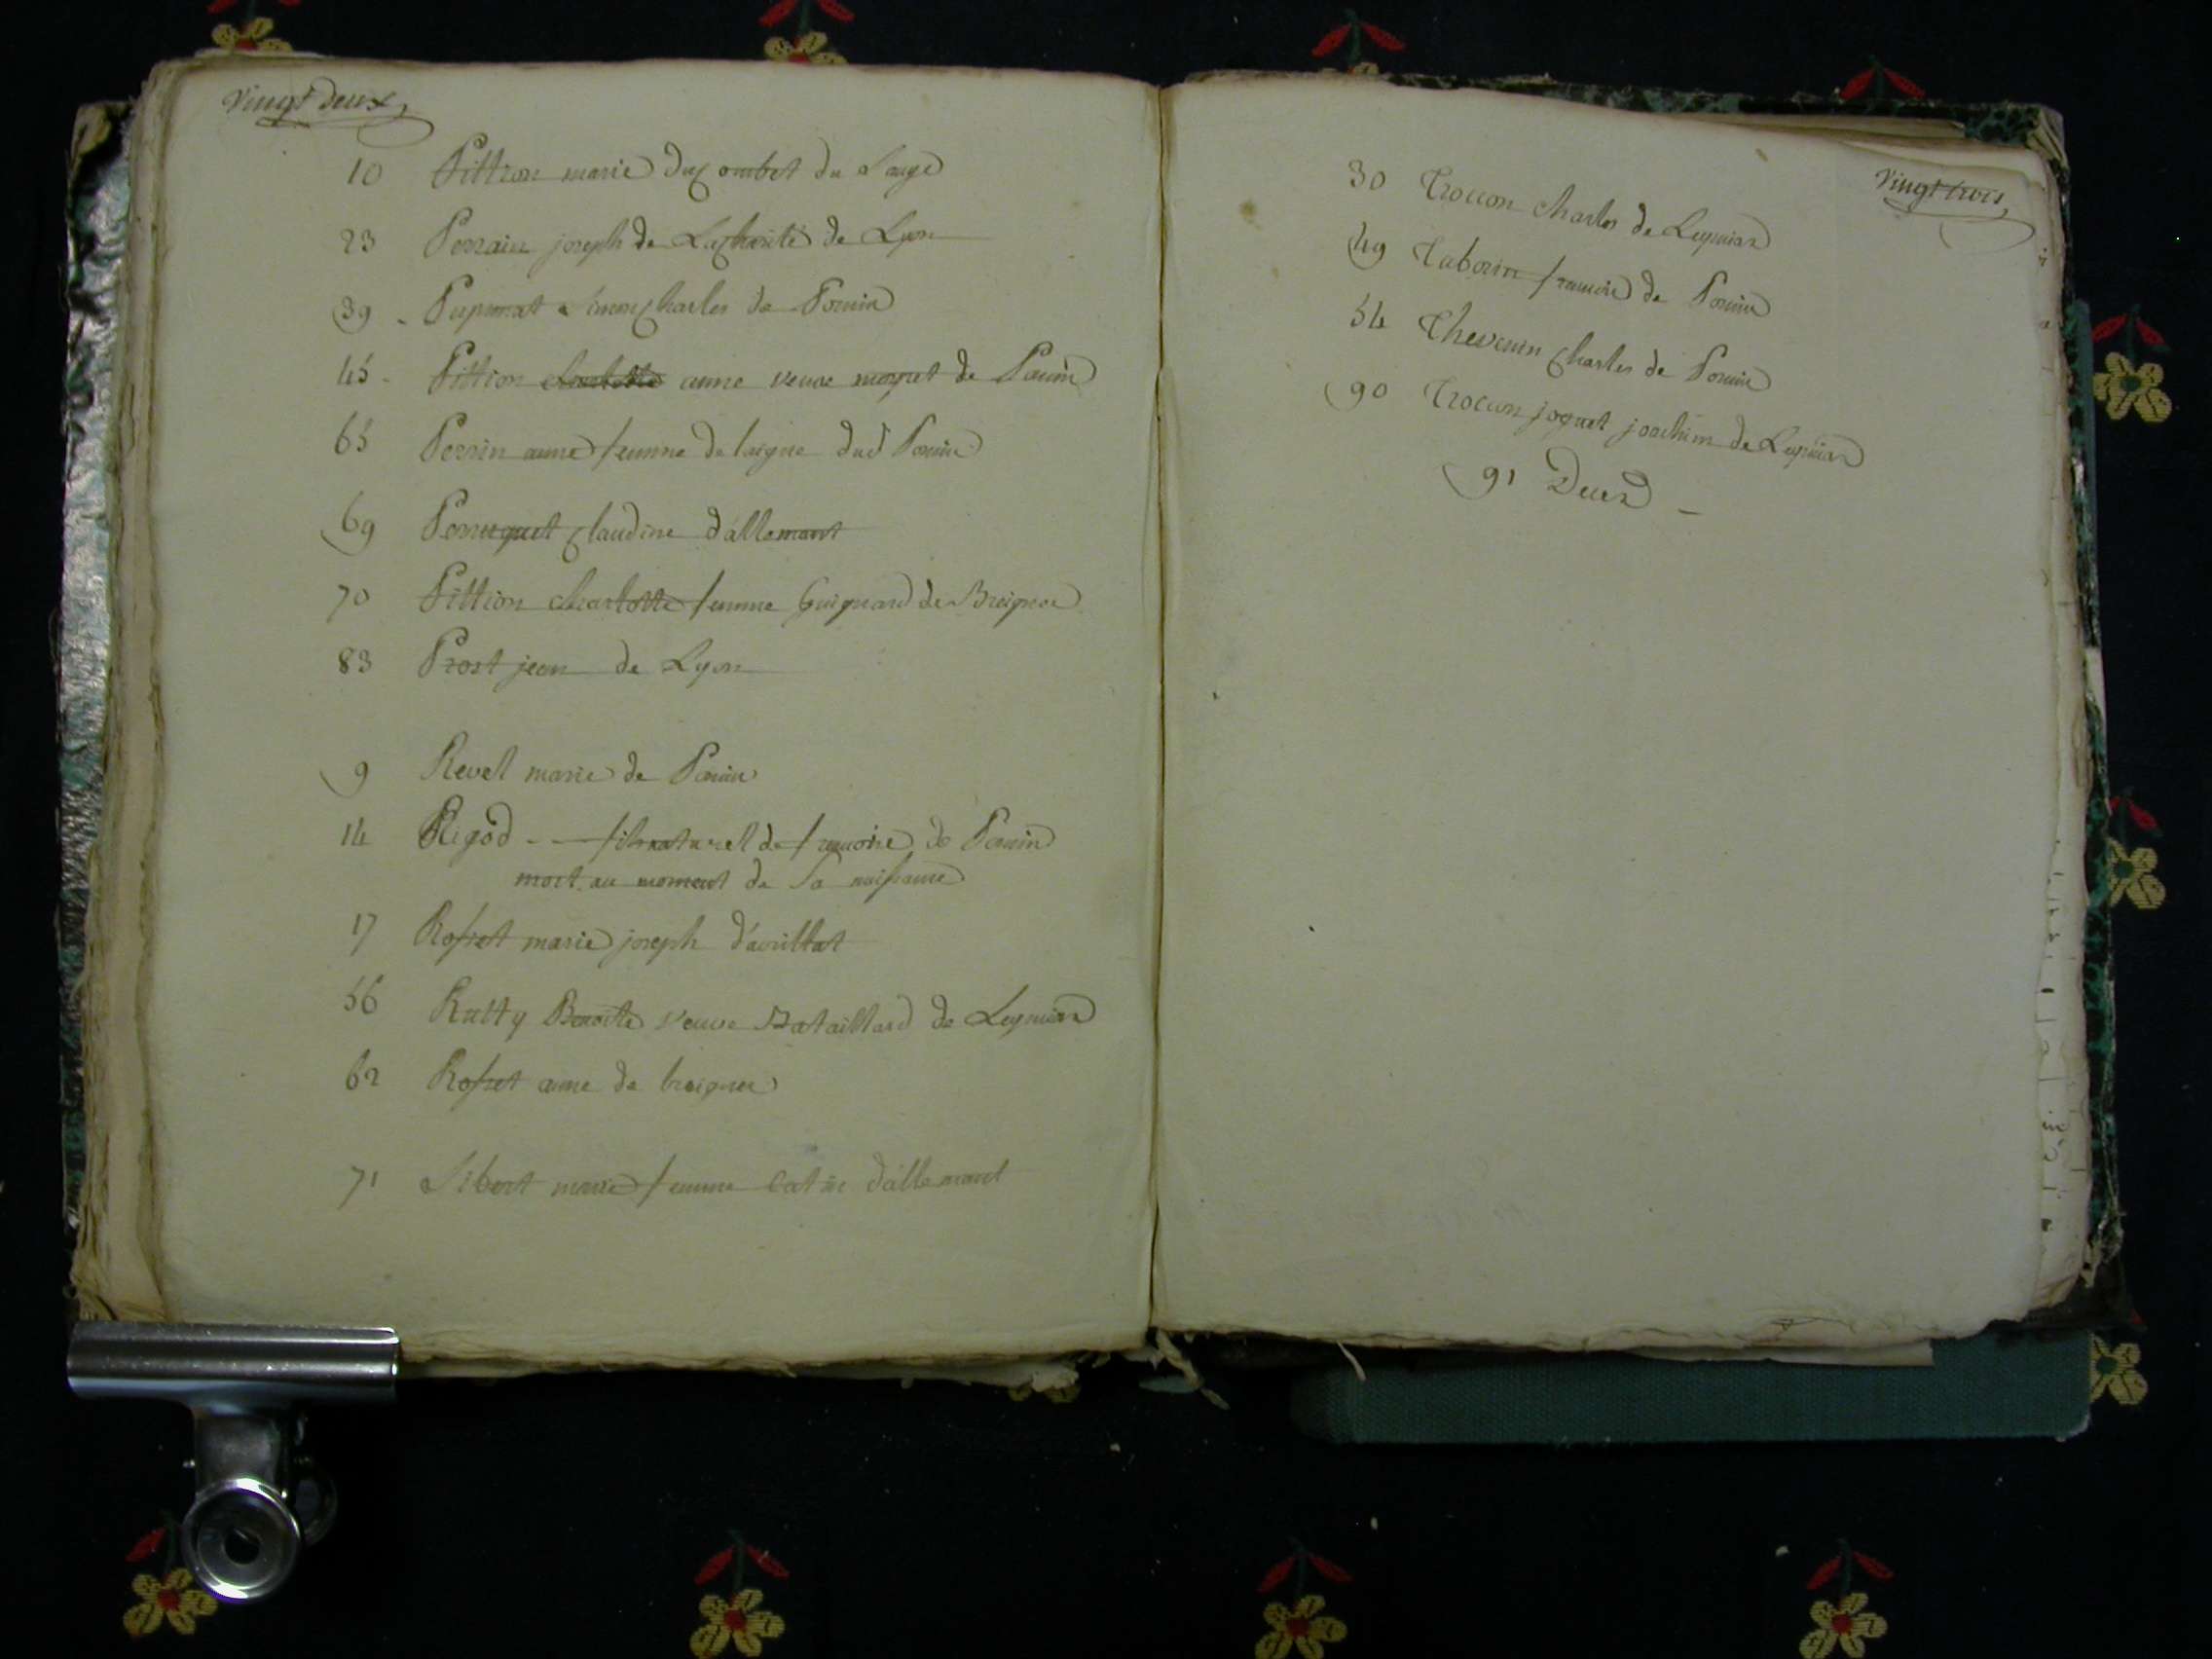 Vingt Deux
10 Pittion marie du Combet du Sauge
23 Perrain joseph de La Charité de Lyon
39 - Pupunat Charles de Poncin
45 - Pittion anne veuve moyret de Poncin
65 Perrin anne femme de laigue dud Poncin
69 Perruquet Claudine d'allemant
70 Pittion charlotte femme Guignard de Breignes
83 Prost jean de Lyon
9 Revel marie de Poncin
14 Rigod - - fils naturel de francoise de Poncin
mort au moment de Sa naissance
17 Rosset marie joseph d'avrillat
56 Rutty Benoite veuve Bataillard de Leymiaz
62 Rosset anne de breignes
71 Sibert marie femme Catin d'allemant
Vingt trois
30 Trocon charles de Leymiaz
49 Taborin francois de Poncin
54 Thevenin Charles de Poncin
90 Trocon joguet joachim de Leymiaz
91 Decez -